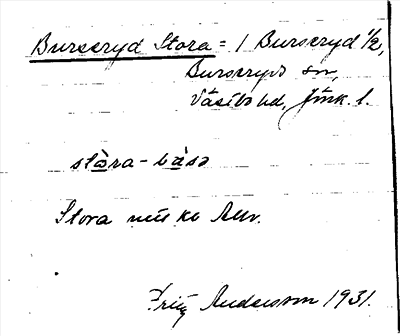 Burseryd Stora = 1 Burseryd 1/2,
Burseryds sn,
Västbo hd, Jönk. l.
stòra-
Stora
Fritz Andersson 1931.